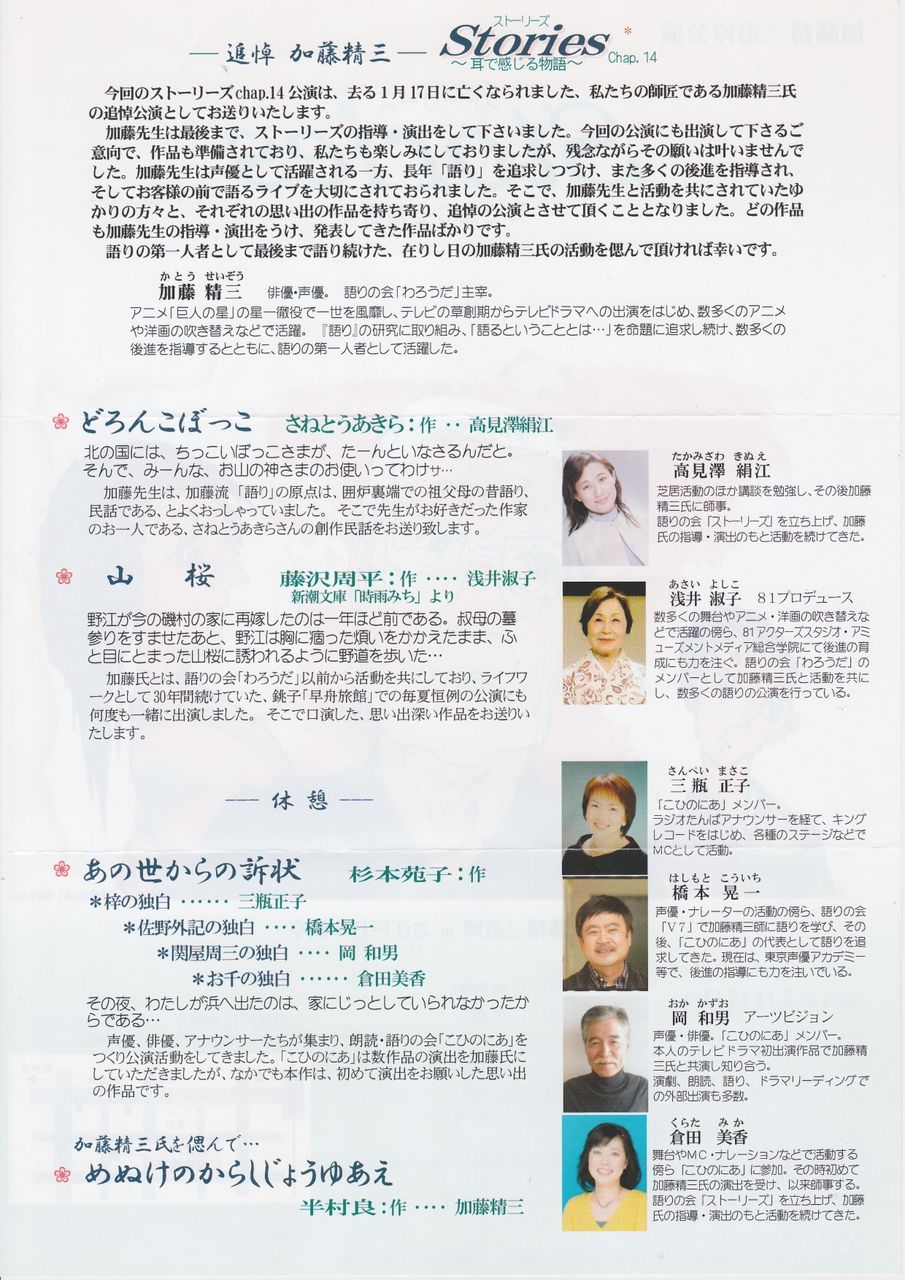 ストーリーズ
― 追悼 加藤精三 ― Stories * Chap. 14
～ 耳で感じる物語～
今回のストーリーズchap.14 公演は、去る１月17日に亡くなられました、私たちの師匠である加藤精三氏
の追悼公演としてお送りいたします。
加藤先生は最後まで、ストーリーズの指導・演出をして下さいました。今回の公演にも出演して下さるご
意向で、作品も準備されており、私たちも楽しみにしておりましたが、残念ながらその願いは叶いませんで
した。加藤先生は声優として活躍される一方、長年「語り」を追求しつづけ、また多くの後進を指導され、
そしてお客様の前で語るライブを大切にされておられました。そこで、加藤先生と活動を共にされていたゆ
かりの方々と、それぞれの思い出の作品を持ち寄り、追悼の公演とさせて頂くこととなりました。どの作品
も加藤先生の指導・演出をうけ、発表してきた作品ばかりです。
語りの第一人者として最後まで語り続けた、在りし日の加藤精三氏の活動を偲んで頂ければ幸いです。
かとう せいぞう
加藤 精三 俳優・声優。 語りの会「わろうだ」主宰。
アニメ「巨人の星」の星一徹役で一世を風靡し、テレビの草創期からテレビドラマへの出演をはじめ、数多くのアニメ
や洋画の吹き替えなどで活躍。 『語り』の研究に取り組み、「語るということとは…」を命題に追求し続け、数多くの
後進を指導するとともに、語りの第一人者として活躍した。
どろんこぼっこ さねとうあきら：作 ‥ 高見澤絹江
北の国には、ちっこいぼっこさまが、たーんといなさるんだと。
そんで、みーんな、お山の神さまのお使いってわけサ…
加藤先生は、加藤流 「語り」の原点は、囲炉裏端での祖父母の昔語り、
民話である、とよくおっしゃっていました。 そこで先生がお好きだった作家
のお一人である、さねとうあきらさんの創作民話をお送り致します。
たかみざわ きぬえ
高見澤 絹江
芝居活動のほか講談を勉強し、その後加藤
精三氏に師事。
語りの会「ストーリーズ」を立ち上げ、加藤
氏の指導・演出のもと活動を続けてきた。
山 桜 藤沢周平：作 ‥‥ 浅井淑子
新潮文庫「時雨みち」より
野江が今の磯村の家に再嫁したのは一年ほど前である。叔母の墓
参りをすませたあと、野江は胸に痼った煩いをかかえたまま、ふ
と目にとまった山桜に誘われるように野道を歩いた…
加藤氏とは、語りの会「わろうだ」以前から活動を共にしており、ライフワ
ークとして30年間続けていた、銚子「早舟旅館」での毎夏恒例の公演にも
何度も一緒に出演しました。 そこで口演した、思い出深い作品をお送りい
たします。
あさい よしこ
浅井 淑子 81プロデュース
数多くの舞台やアニメ・洋画の吹き替えな
どで活躍の傍ら、81アクターズスタジオ・アミ
ューズメントメディア総合学院にて後進の育
成にも力を注ぐ。語りの会「わろうだ」の
メンバーとして加藤精三氏と活動を共に
し、数多くの語りの公演を行っている。
--- 休 憩 ---
さんぺい まさこ
三瓶 正子
「こひのにあ」メンバー。
ラジオたんぱアナウンサーを経て、キング
レコードをはじめ、各種のステージなどで
MCとして活動。
あの世からの訴状 杉本苑子：作
＊梓の独白 ‥‥‥ 三瓶正子
＊佐野外記の独白 ‥‥ 橋本晃一
＊関屋周三の独白 ‥‥ 岡 和男
＊お千の独白 ‥‥‥ 倉田美香
その夜、わたしが浜へ出たのは、家にじっとしていられなかったか
らである…
声優、俳優、アナウンサーたちが集まり、朗読・語りの会「こひのにあ」を
つくり公演活動をしてきました。「こひのにあ」は数作品の演出を加藤氏に
していただきましたが、なかでも本作は、初めて演出をお願いした思い出
の作品です。
はしもと こういち
橋本 晃一
声優・ナレーターの活動の傍ら、語りの会
「Ｖ７」で加藤精三師に語りを学び、その
後、「こひのにあ」の代表として語りを追
求してきた。現在は、東京声優アカデミー
等で、後進の指導にも力を注いでいる。
おか かずお
岡 和男 アーツビジョン
声優・俳優。「こひのにあ」メンバー。
本人のテレビドラマ初出演作品で加藤精
三氏と共演し知り合う。
演劇、朗読、語り、ドラマリーディングで
の外部出演も多数。
くらた みか
倉田 美香
舞台やMC・ナレーションなどで活動する
傍ら「こひのにあ」に参加。その時初めて
加藤精三氏の演出を受け、以来師事する。
語りの会「ストーリーズ」を立ち上げ、加藤
氏の指導・演出のもと活動を続けてきた。
加藤精三氏を偲んで…
めぬけのからしじょうゆあえ
半村良：作 ‥‥ 加藤精三